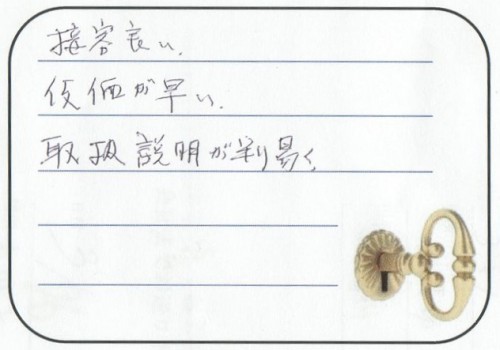 接客良い、
価が早い、
取扱説明が判り易く、